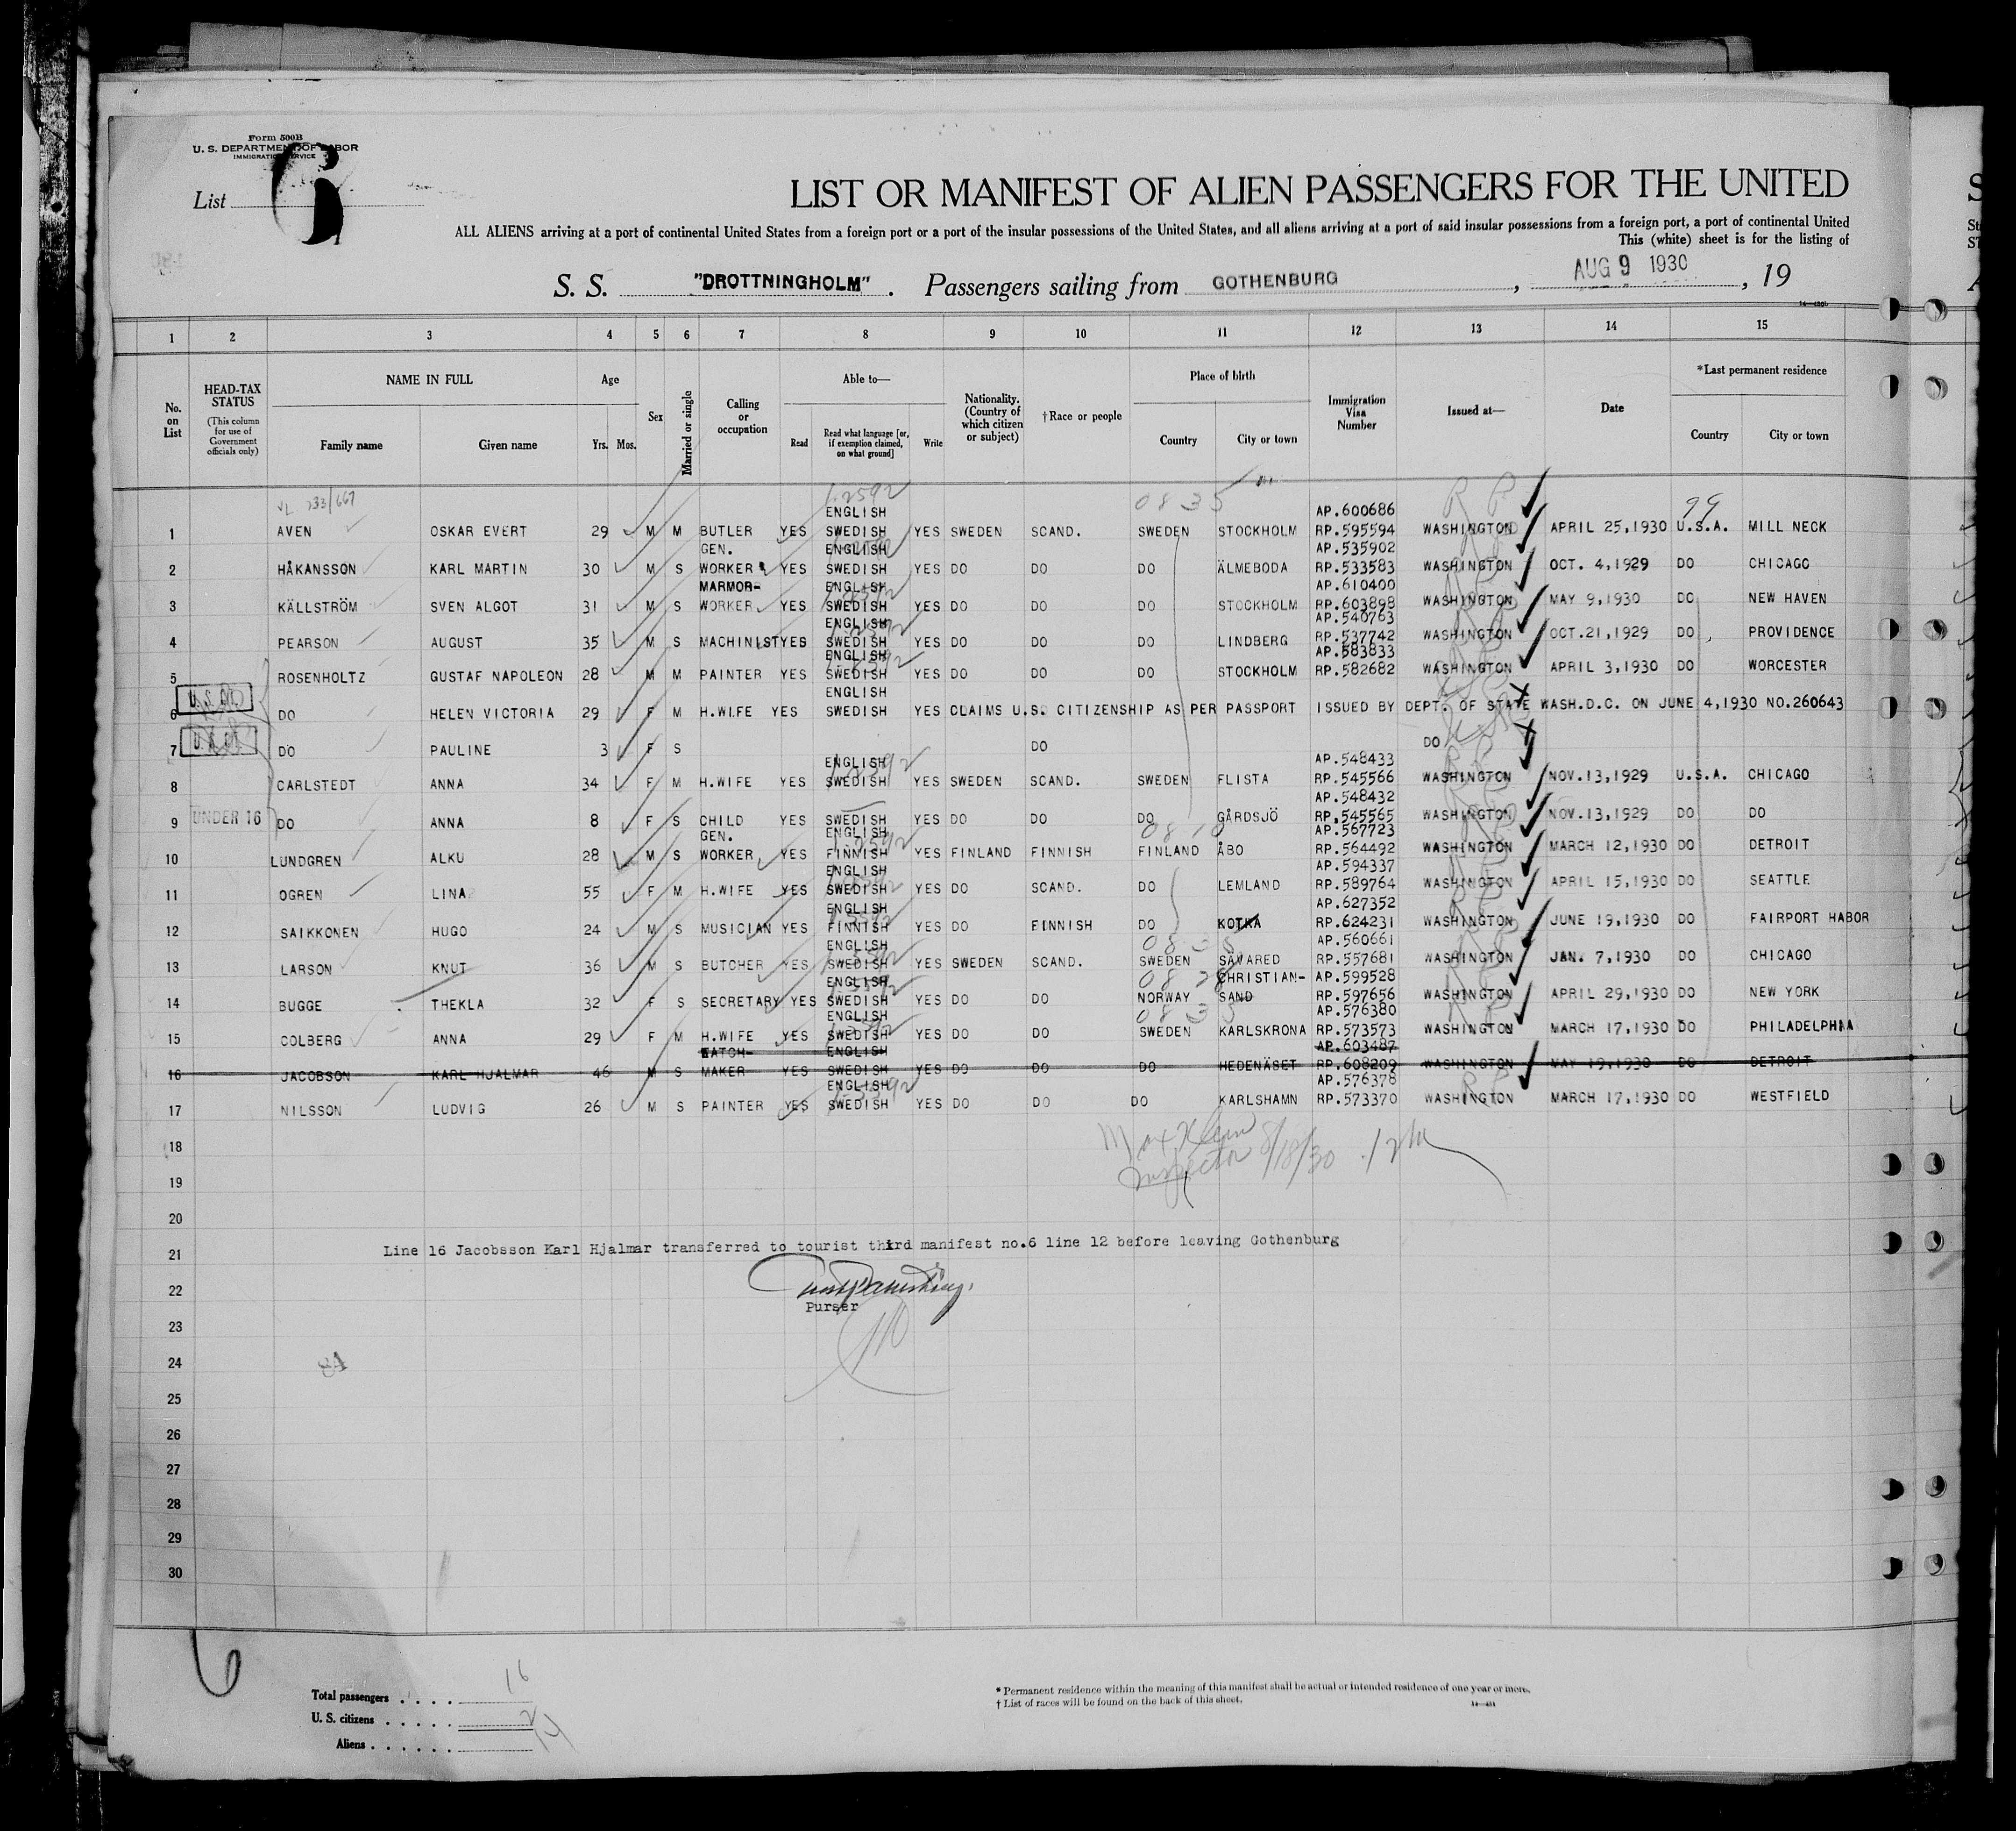 Form 500B
U. S. DEPARTMENT OF LABOR
IMMIGRATION SERVICE
List 6
LIST OR MANIFEST OF ALIEN PASSENGERS FOR THE UNITED
ALL ALIENS arriving at a port of continental United States from a foreign port or a port of the insular possessions of the United States, and all aliens arriving at a port of said insular possessions from a foreign port, a port of continental United
This (white) sheet is for the listing of
S. S. "DROTTNINGHOLM" . Passengers sailing from GOTHENBURG , AUG 9 1930 , 19
1 2 3 4 5 6 7 8 9 10 11 12 13 14 15
No. on List
HEAD-TAX STATUS (This column for use of Government officials only)
NAME IN FULL Family name Given name
Age Yrs. Mos.
Sex
Married or single
Calling or occupation
Able to— Read Read what language [or, if exemption claimed, on what ground] Write
Nationality. (Country of which citizen or subject)
†Race or people
Place of birth Country City or town
Immigration Visa Number
Issued at—
Date
*Last permanent residence Country City or town
VL 233/667 1-2592 0835 99
ENGLISH AP.600686
1 AVEN OSKAR EVERT 29 M M BUTLER YES SWEDISH YES SWEDEN SCAND. SWEDEN STOCKHOLM RP.595594 WASHINGTON APRIL 25,1930 U.S.A. MILL NECK
GEN. ENGLISH AP.535902
2 HÅKANSSON KARL MARTIN 30 M S WORKER YES SWEDISH YES DO DO DO ÄLMEBODA RP.533583 WASHINGTON OCT. 4,1929 DO CHICAGO
MARMOR- ENGLISH AP.610400
3 KÄLLSTRÖM SVEN ALGOT 31 M S WORKER YES SWEDISH YES DO DO DO STOCKHOLM RP.603898 WASHINGTON MAY 9,1930 DO NEW HAVEN
ENGLISH AP.540763
4 PEARSON AUGUST 35 M S MACHINIST YES SWEDISH YES DO DO DO LINDBERG RP.537742 WASHINGTON OCT.21,1929 DO PROVIDENCE
ENGLISH AP.583833
5 ROSENHOLTZ GUSTAF NAPOLEON 28 M M PAINTER YES SWEDISH YES DO DO DO STOCKHOLM RP.582682 WASHINGTON APRIL 3,1930 DO WORCESTER
U.S.CIT. ENGLISH
6 DO HELEN VICTORIA 29 F M H.WIFE YES SWEDISH YES CLAIMS U.S. CITIZENSHIP AS PER PASSPORT ISSUED BY DEPT. OF STATE WASH.D.C. ON JUNE 4,1930 NO.260643
U.S.CIT.
7 DO PAULINE 3 F S DO DO
ENGLISH AP.548433
8 CARLSTEDT ANNA 34 F M H.WIFE YES SWEDISH YES SWEDEN SCAND. SWEDEN FLISTA RP.545566 WASHINGTON NOV.13,1929 U.S.A. CHICAGO
AP.548432
9 UNDER 16 DO ANNA 8 F S CHILD YES SWEDISH YES DO DO DO GÅRDSJÖ RP.545565 WASHINGTON NOV.13,1929 DO DO
GEN. ENGLISH 0810 AP.567723
10 LUNDGREN ALKU 28 M S WORKER YES FINNISH YES FINLAND FINNISH FINLAND ÅBO RP.564492 WASHINGTON MARCH 12,1930 DO DETROIT
ENGLISH AP.594337
11 OGREN LINA 55 F M H.WIFE YES SWEDISH YES DO SCAND. DO LEMLAND RP.589764 WASHINGTON APRIL 15,1930 DO SEATTLE
ENGLISH AP.627352
12 SAIKKONEN HUGO 24 M S MUSICIAN YES FINNISH YES DO FINNISH DO KOTKA RP.624231 WASHINGTON JUNE 19,1930 DO FAIRPORT HABOR
ENGLISH 0835 AP.560661
13 LARSON KNUT 36 M S BUTCHER YES SWEDISH YES SWEDEN SCAND. SWEDEN SÄVARED RP.557681 WASHINGTON JAN. 7,1930 DO CHICAGO
ENGLISH CHRISTIAN- AP.599528
14 BUGGE THEKLA 32 F S SECRETARY YES SWEDISH YES DO DO NORWAY SAND RP.597656 WASHINGTON APRIL 29,1930 DO NEW YORK
ENGLISH 0835 AP.576380
15 COLBERG ANNA 29 F M H.WIFE YES SWEDISH YES DO DO SWEDEN KARLSKRONA RP.573573 WASHINGTON MARCH 17,1930 DO PHILADELPHIA
WATCH- ENGLISH AP.603487
16 JACOBSON KARL HJALMAR 46 M S MAKER YES SWEDISH YES DO DO DO HEDENÄSET RP.608209 WASHINGTON MAY 19,1930 DO DETROIT
ENGLISH AP.576378
17 NILSSON LUDVIG 26 M S PAINTER YES SWEDISH YES DO DO DO KARLSHAMN RP.573370 WASHINGTON MARCH 17,1930 DO WESTFIELD
18
Inspector 8/18/30
19
20
21 Line 16 Jacobsson Karl Hjalmar transferred to tourist third manifest no.6 line 12 before leaving Gothenburg
22
Purser
23
24
25
26
27
28
29
30
6
Total passengers . . . . 16
U. S. citizens . . . . . 2
Aliens . . . . . . 14
* Permanent residence within the meaning of this manifest shall be actual or intended residence of one year or more.
† List of races will be found on the back of this sheet.